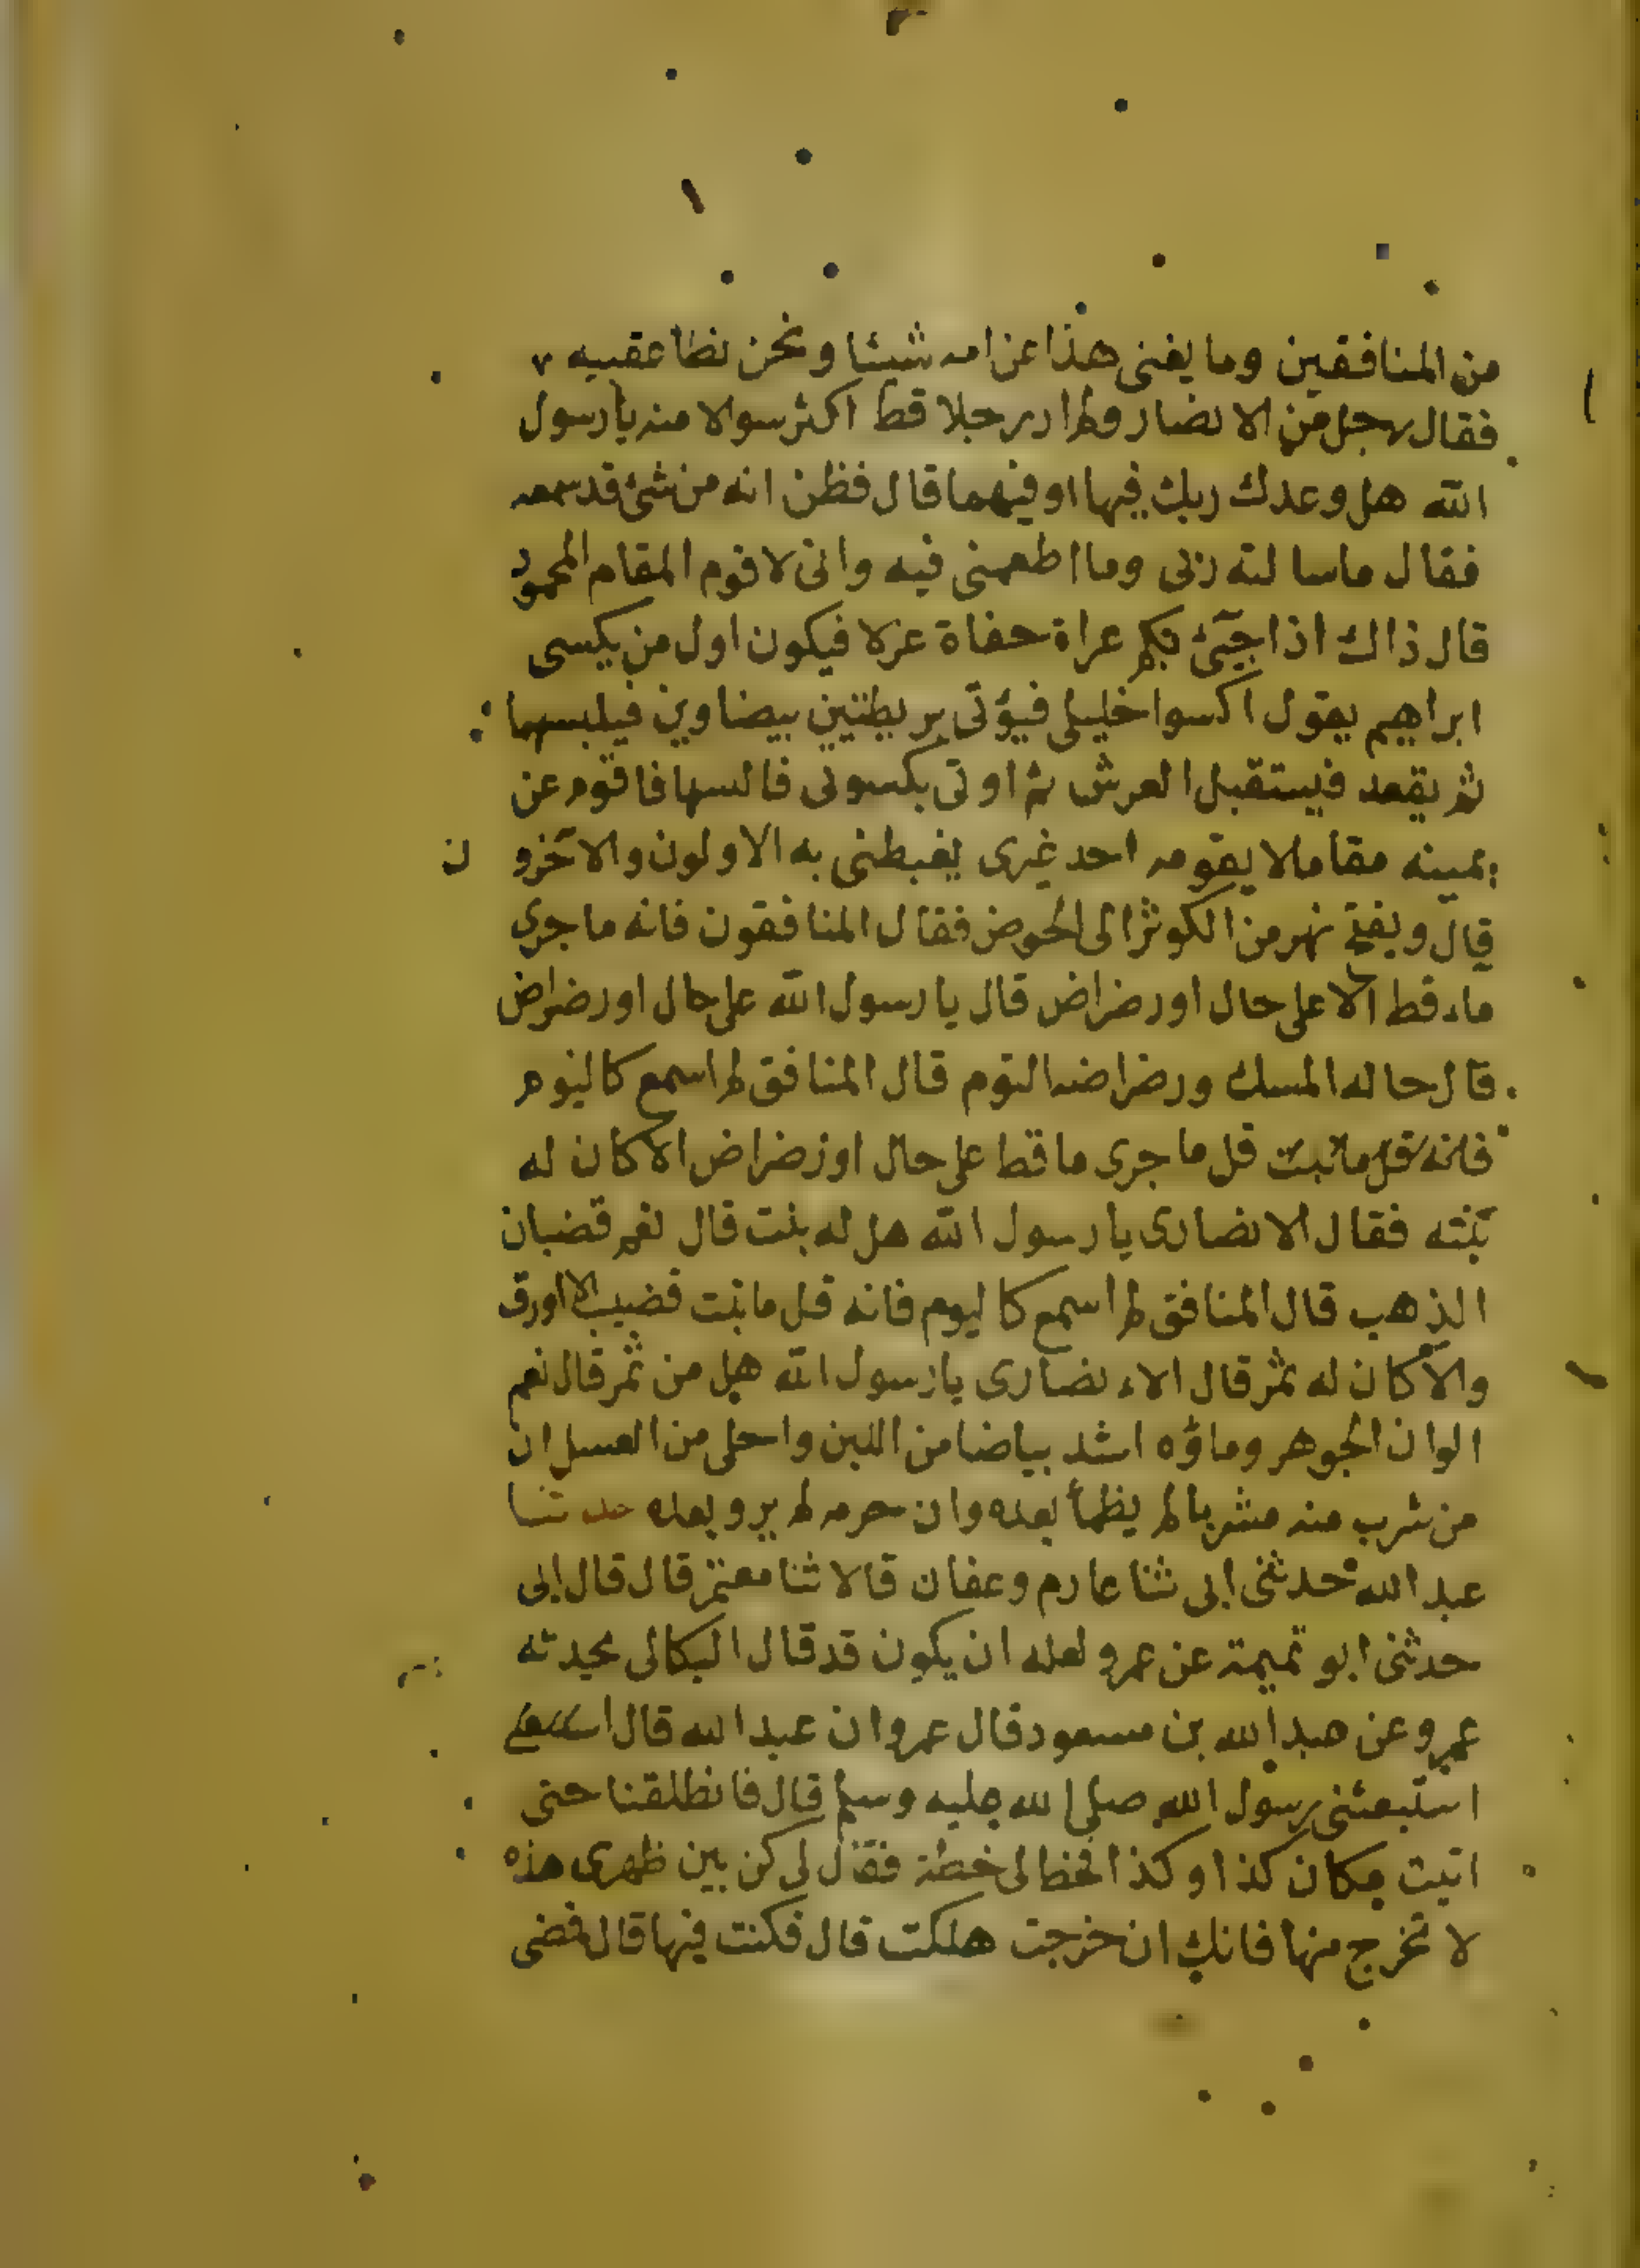 من المنافقين وما يغنى هذا عن امه شيئا ونحن نطا عقبيه
فقال رجل من الانصار ولم ار رجلا قط اكثر سوالا منه يا رسول
الله هل وعدك ربك فيها او فيهما قال فظن انه من شئ قد سمعه
فقال ما سالته ربى وما اطعمنى فيه وانى لاقوم المقام المحمود
قال ذاك اذا جيئ بكم عراة حفاة عزلا فيكون اول من يكسى
ابراهيم يقول اكسوا خليلى فيؤتى بريطتين بيضاوين فيلبسهما
ثم يقعد فيستقبل العرش ثم اوتى بكسوتى فالبسها فاقوم عن
يمينه مقاما لا يقومه احد غيرى يغبطنى به الاولون والاخرون
قال ويفتح نهر من الكوثر الى الحوض فقال المنافقون فانه ما جرى
ماء قط الا على حال او رضراض قال يا رسول الله على حال او رضراض
قال حاله المسك ورضراضه التوم قال المنافق لم اسمع كاليوم
فانه قل ما جرى ما قط على حال او رضراض الا كان له
نبته فقال الانصارى يا رسول الله هل له بنت قال نعم قضبان
الذهب قال المنافق لم اسمع كاليوم فانه قل ما نبت قضيب الا اورق
والا كان له ثمر قال الانصارى يا رسول الله هل من ثمر قال نعم
الوان الجوهر وماؤه اشد بياضا من اللبن واحلى من العسل ان
من شرب منه مشربا لم يظمأ بعده وان حرمه لم يرو بعده حدثنا
عبد الله حدثنى ابى ثنا عارم وعفان قالا ثنا معتمر قال قال ابى
حدثنى ابو تميمة عن عمرو لعله ان يكون قد قال البكالى يحدثه
عمرو عن عبد الله بن مسعود قال عمرو ان عبد الله قال
استبعثنى رسول الله صلى الله عليه وسلم قال فانطلقنا حتى
اتيت مكان كذا وكذا فخط لى خطة فقال لى كن بين ظهرى هذه
لا تخرج منها فانك ان خرجت هلكت قال فكنت فيها قال فمضى